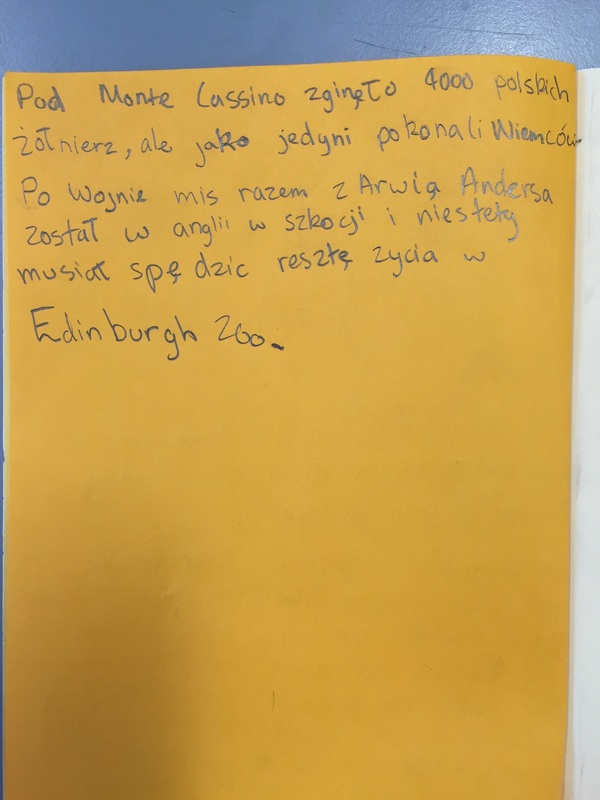 Pod Monte Cassino zginęło 4000 polskich
żołnierz, ale jako jedyni pokonali Niemców.
Po Wojnie mis razem z Arwią Andersa
został w anglii w szkocji i niestety
musiał spę dzic resztę zycia w
Edinburgh Zoo.